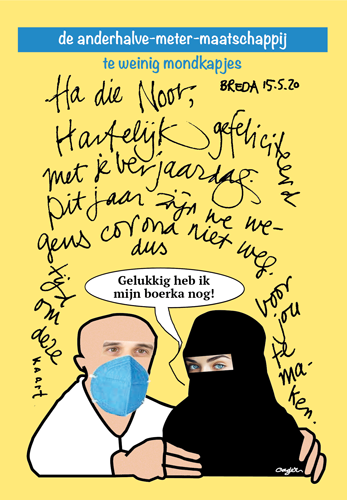 de anderhalve-meter-maatschappij
te weinig mondkapjes
BREDA 15.5.20
Ha die Noor,
Hartelijk gefeliciteerd
met je verjaardag.
Dit jaar zijn we we-
gens corona niet weg.
dus
tijd om deze
KAART
voor
jou
te ma-
ken.
Gelukkig heb ik
mijn boerka nog!